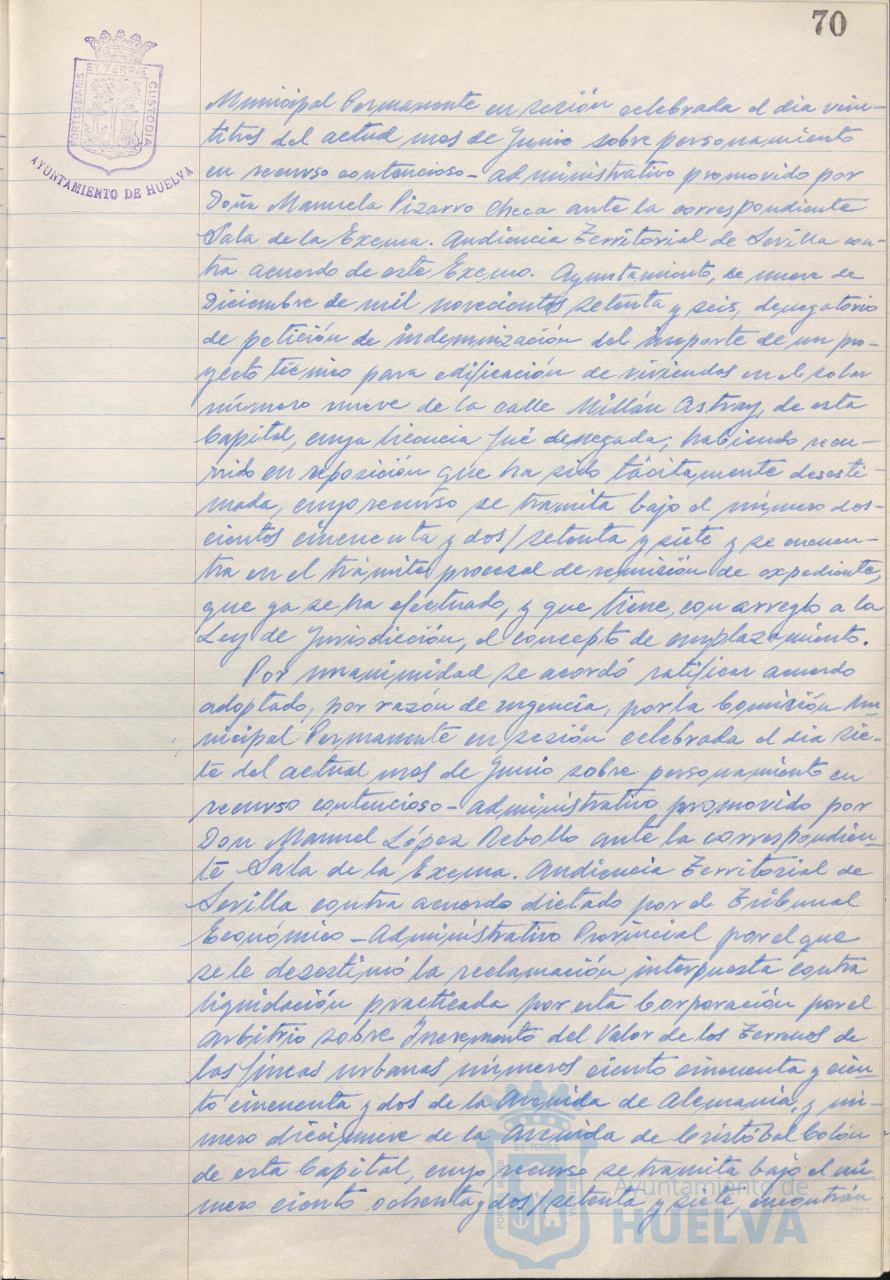 70
ET TERRÆ
PORTUS MARIS
CUSTODIA
AYUNTAMIENTO DE HUELVA
Municipal Permanente en sesión celebrada el dia vein-
titres del actual mes de Junio sobre personamiento
en recurso contencioso-administrativo promovido por
Doña Manuela Pizarro Checa ante la correspondiente
Sala de la Excma. Audiencia Territorial de Sevilla con-
tra acuerdo de este Excmo. Ayuntamiento, de nueve de
Diciembre de mil novecientos setenta y seis, denegatorio
de petición de indemnización del importe de un pro-
yecto técnico para edificación de viviendas en el solar
número nueve de la calle Millán Astray, de esta
Capital, cuya licencia fué denegada; habiendo recu-
rrido en reposición que ha sido tácitamente desesti-
mada, cuyo recurso se tramita bajo el número dos-
cientos cincuenta y dos/setenta y siete y se encuen-
tra en el trámite procesal de remisión de expediente,
que ya se ha efectuado, y que tiene, con arreglo a la
Ley de Jurisdicción, el concepto de emplazamiento.
Por unanimidad se acordó ratificar acuerdo
adoptado, por razón de urgencia, por la Comisión Mu-
nicipal Permanente en sesión celebrada el dia sie-
te del actual mes de Junio sobre personamiento en
recurso contencioso-administrativo promovido por
Don Manuel López Rebollo ante la correspondien-
te Sala de la Excma. Audiencia Territorial de
Sevilla contra acuerdo dictado por el Tribunal
Económico-Administrativo Provincial por el que
se le desestimó la reclamación interpuesta contra
liquidación practicada por esta Corporación por el
arbitrio sobre Incremento del Valor de los Terrenos de
las fincas urbanas números ciento cincuenta y cien-
to cincuenta y dos de la Avenida de Alemania, y nú-
mero diecinueve de la Avenida de Cristóbal Colón
de esta Capital, cuyo recurso se tramita bajo el nú-
mero ciento ochenta y dos/setenta y siete, encontrán
ET TERRA
Ayuntamiento de
HUELVA